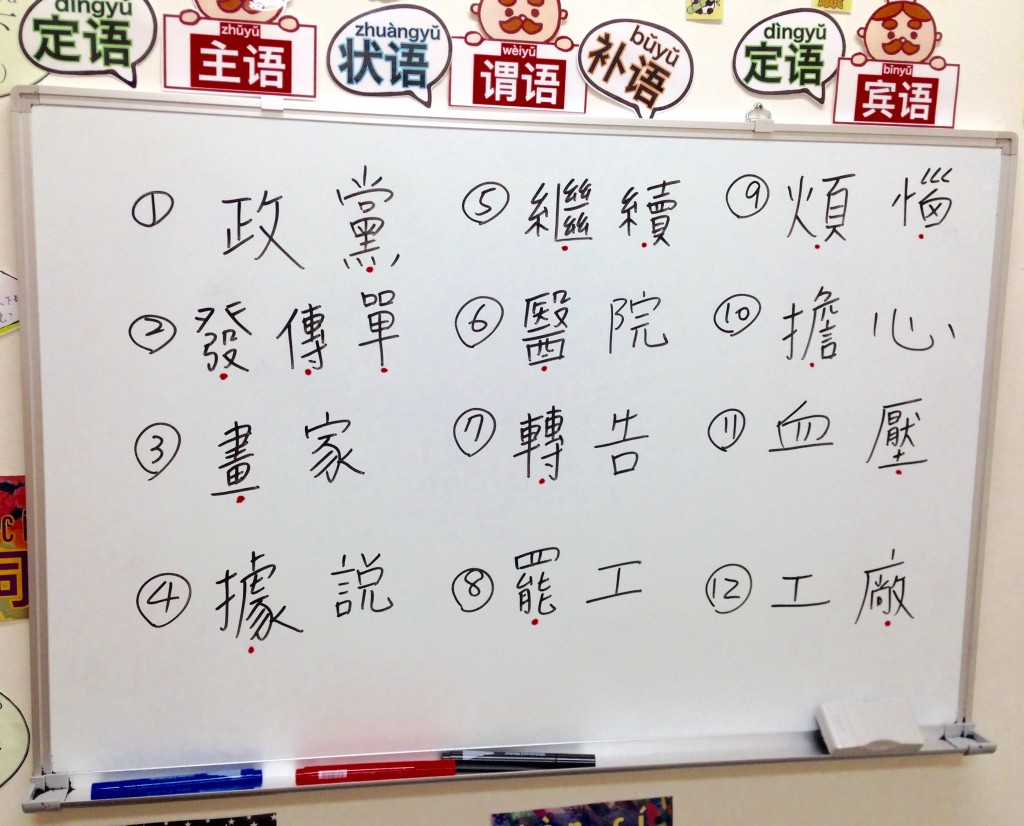 dìngyǔ
定语
zhǔyǔ
主语
zhuàngyǔ
状语
wèiyǔ
谓语
bǔyǔ
补语
dìngyǔ
定语
bīnyǔ
宾语
① 政黨
② 發傳單
③ 畫家
④ 據説
⑤ 繼續
⑥ 醫院
⑦ 轉告
⑧ 罷工
⑨ 煩惱
⑩ 擔心
⑪ 血壓
⑫ 工廠